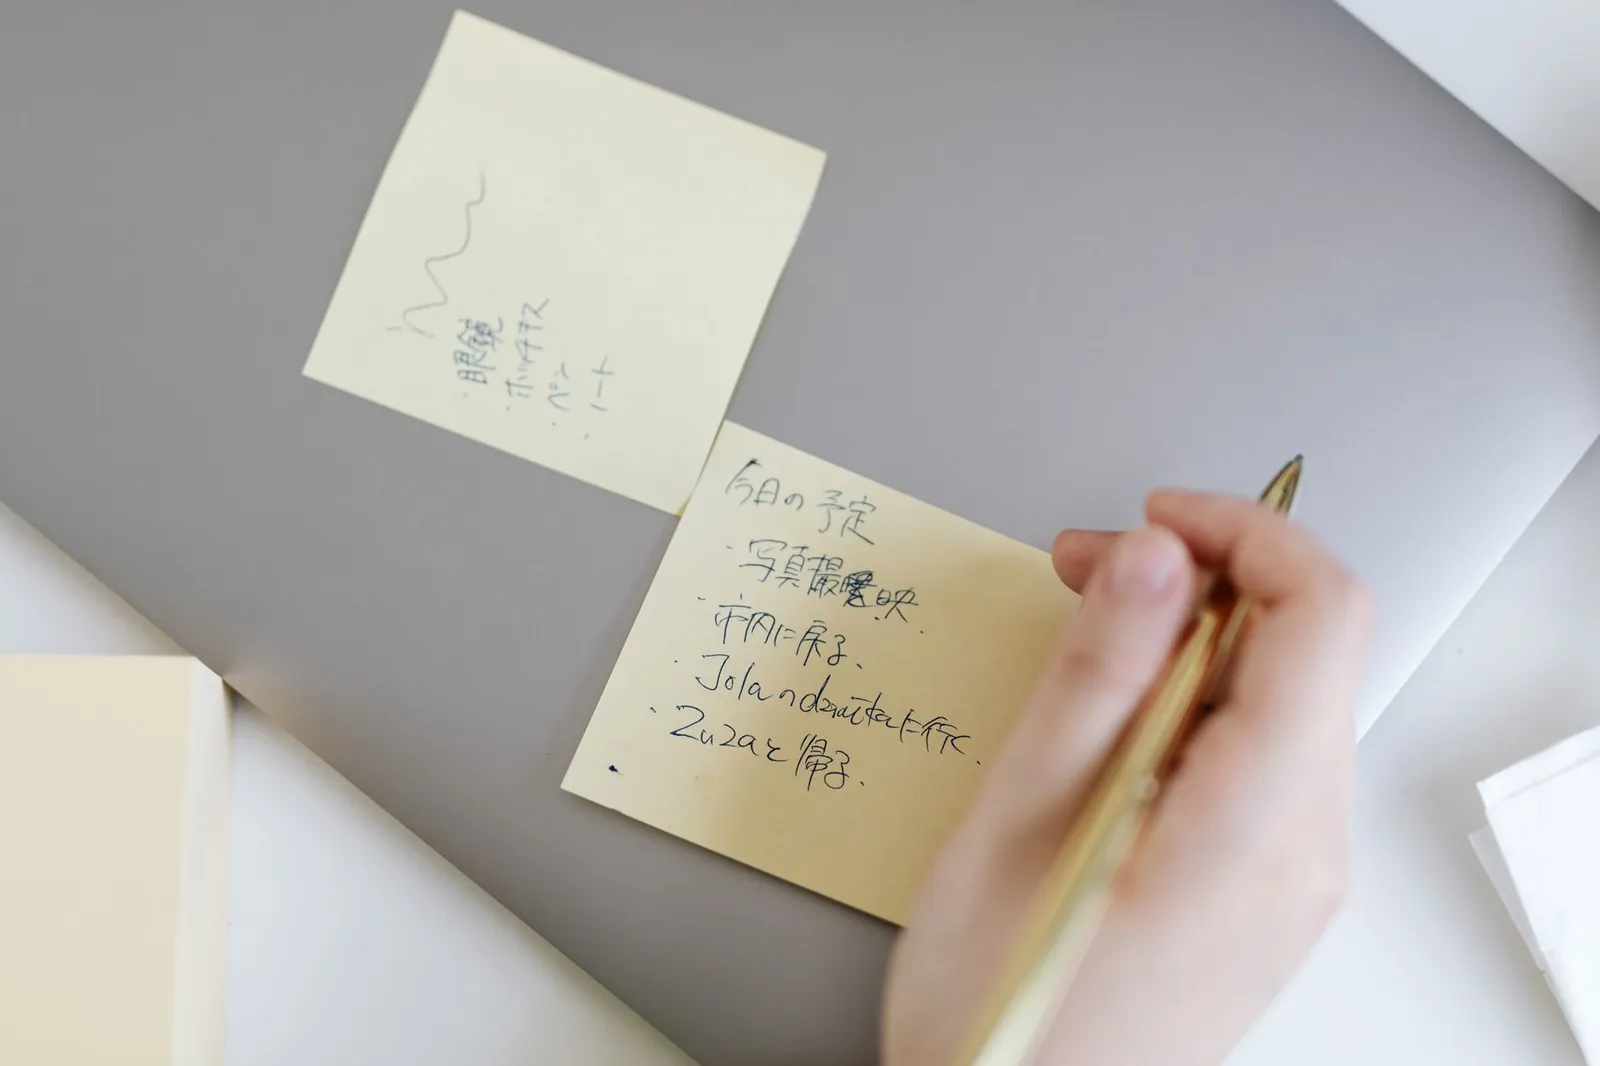 ・眼鏡
・ホッチキス
・ペン
・ノート
今日の予定
・写真撮映.
・市内に戻る.
・Jolaの に行く.
・Zuzaと帰る.
・